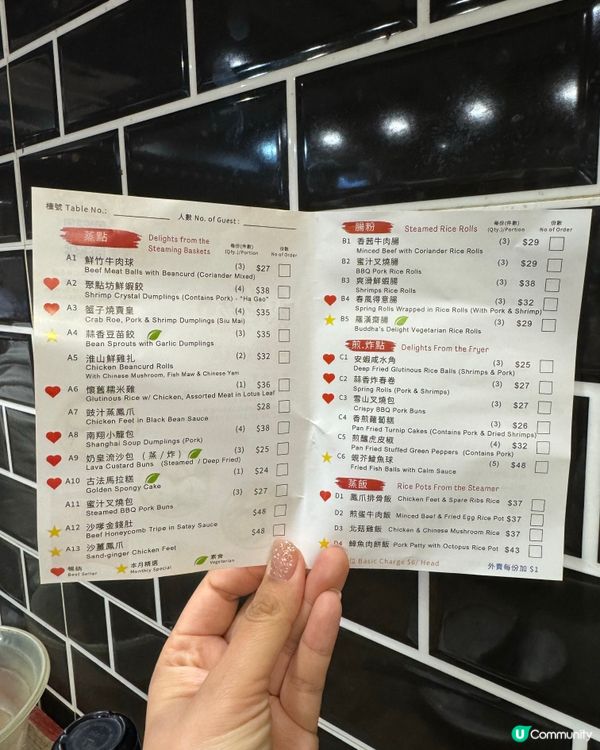 檯號 Table No.:
人數 No. of Guest :
蒸點
Delights from the
Steaming Baskets
每份(件數)
(Qty.)/Portion
份數
No of Order
A1 鮮竹牛肉球 (3) $27
Beef Meat Balls with Beancurd (Coriander Mixed)
A2 聚點坊鮮蝦餃 (4) $38
Shrimp Crystal Dumplings (Contains Pork) - "Ha Gao"
A3 籠子燒賣皇 (4) $35
Crab Roe, Pork & Shrimp Dumplings (Siu Mai)
A4 蒜香豆苗餃 (3) $35
Bean Sprouts with Garlic Dumplings
A5 淮山鮮雞扎 (2) $32
Chicken Beancurd Rolls
With Chinese Mushroom, Fish Maw & Chinese Yam
A6 懷舊糯米雞 (1) $36
Glutinous Rice w/ Chicken, Assorted Meat in Lotus Leaf
A7 豉汁蒸鳳爪 $28
Chicken Feet in Black Bean Sauce
A8 南翔小籠包 (4) $38
Shanghai Soup Dumplings (Pork)
A9 奶皇流沙包 (蒸/炸) (3) $25
Lava Custard Buns (Steamed / Deep Fried)
A10 古法馬拉糕 (1) $24
Golden Spongy Cake
A11 蜜汁叉燒包 (3) $27
Steamed BBQ Pork Buns
A12 沙嗲金錢肚 $48
Beef Honeycomb Tripe in Satay Sauce
A13 沙薑鳳爪 $48
Sand-ginger Chicken Feet
暢銷
Best Seller
本月精選
Monthly Special
素食
Vegetarian
腸粉
Steamed Rice Rolls
每份(件數)
(Qty.)/Portion
份數
No of Order
B1 香茜牛肉腸 (3) $29
Minced Beef with Coriander Rice Rolls
B2 蜜汁叉燒腸 (3) $29
BBQ Pork Rice Rolls
B3 爽滑鮮蝦腸 (3) $38
Shrimps Rice Rolls
B4 春風得意腸 (3) $32
Spring Rolls Wrapped in Rice Rolls (With Pork & Shrimp)
B5 羅漢齋腸 (3) $29
Buddha's Delight Vegetarian Rice Rolls
煎.炸點
Delights From the Fryer
C1 安蝦咸水角 (3) $25
Deep Fried Glutinous Rice Balls (Shrimps & Pork)
C2 蒜香炸春卷 (3) $27
Spring Rolls (Pork & Shrimps)
C3 雪山叉燒包 (3) $27
Crispy BBQ Pork Buns
C4 香煎蘿蔔糕 (3) $26
Pan Fried Turnip Cakes (Contains Pork & Dried Shrimps)
C5 煎釀虎皮椒 (4) $32
Pan Fried Stuffed Green Peppers (Contains Pork)
C6 蜆芥鯪魚球 (5) $48
Fried Fish Balls with Calm Sauce
蒸飯
Rice Pots From the Steamer
D1 鳳爪排骨飯 Chicken Feet & Spare Ribs Rice $37
D2 煎蛋牛肉飯 Minced Beef & Fried Egg Rice Pot $37
D3 北菇雞飯 Chicken & Chinese Mushroom Rice $37
D4 鱆魚肉餅飯 Pork Patty with Octopus Rice Pot $43
Basic Charge $6/ Head
外賣每份加 $1
U Community